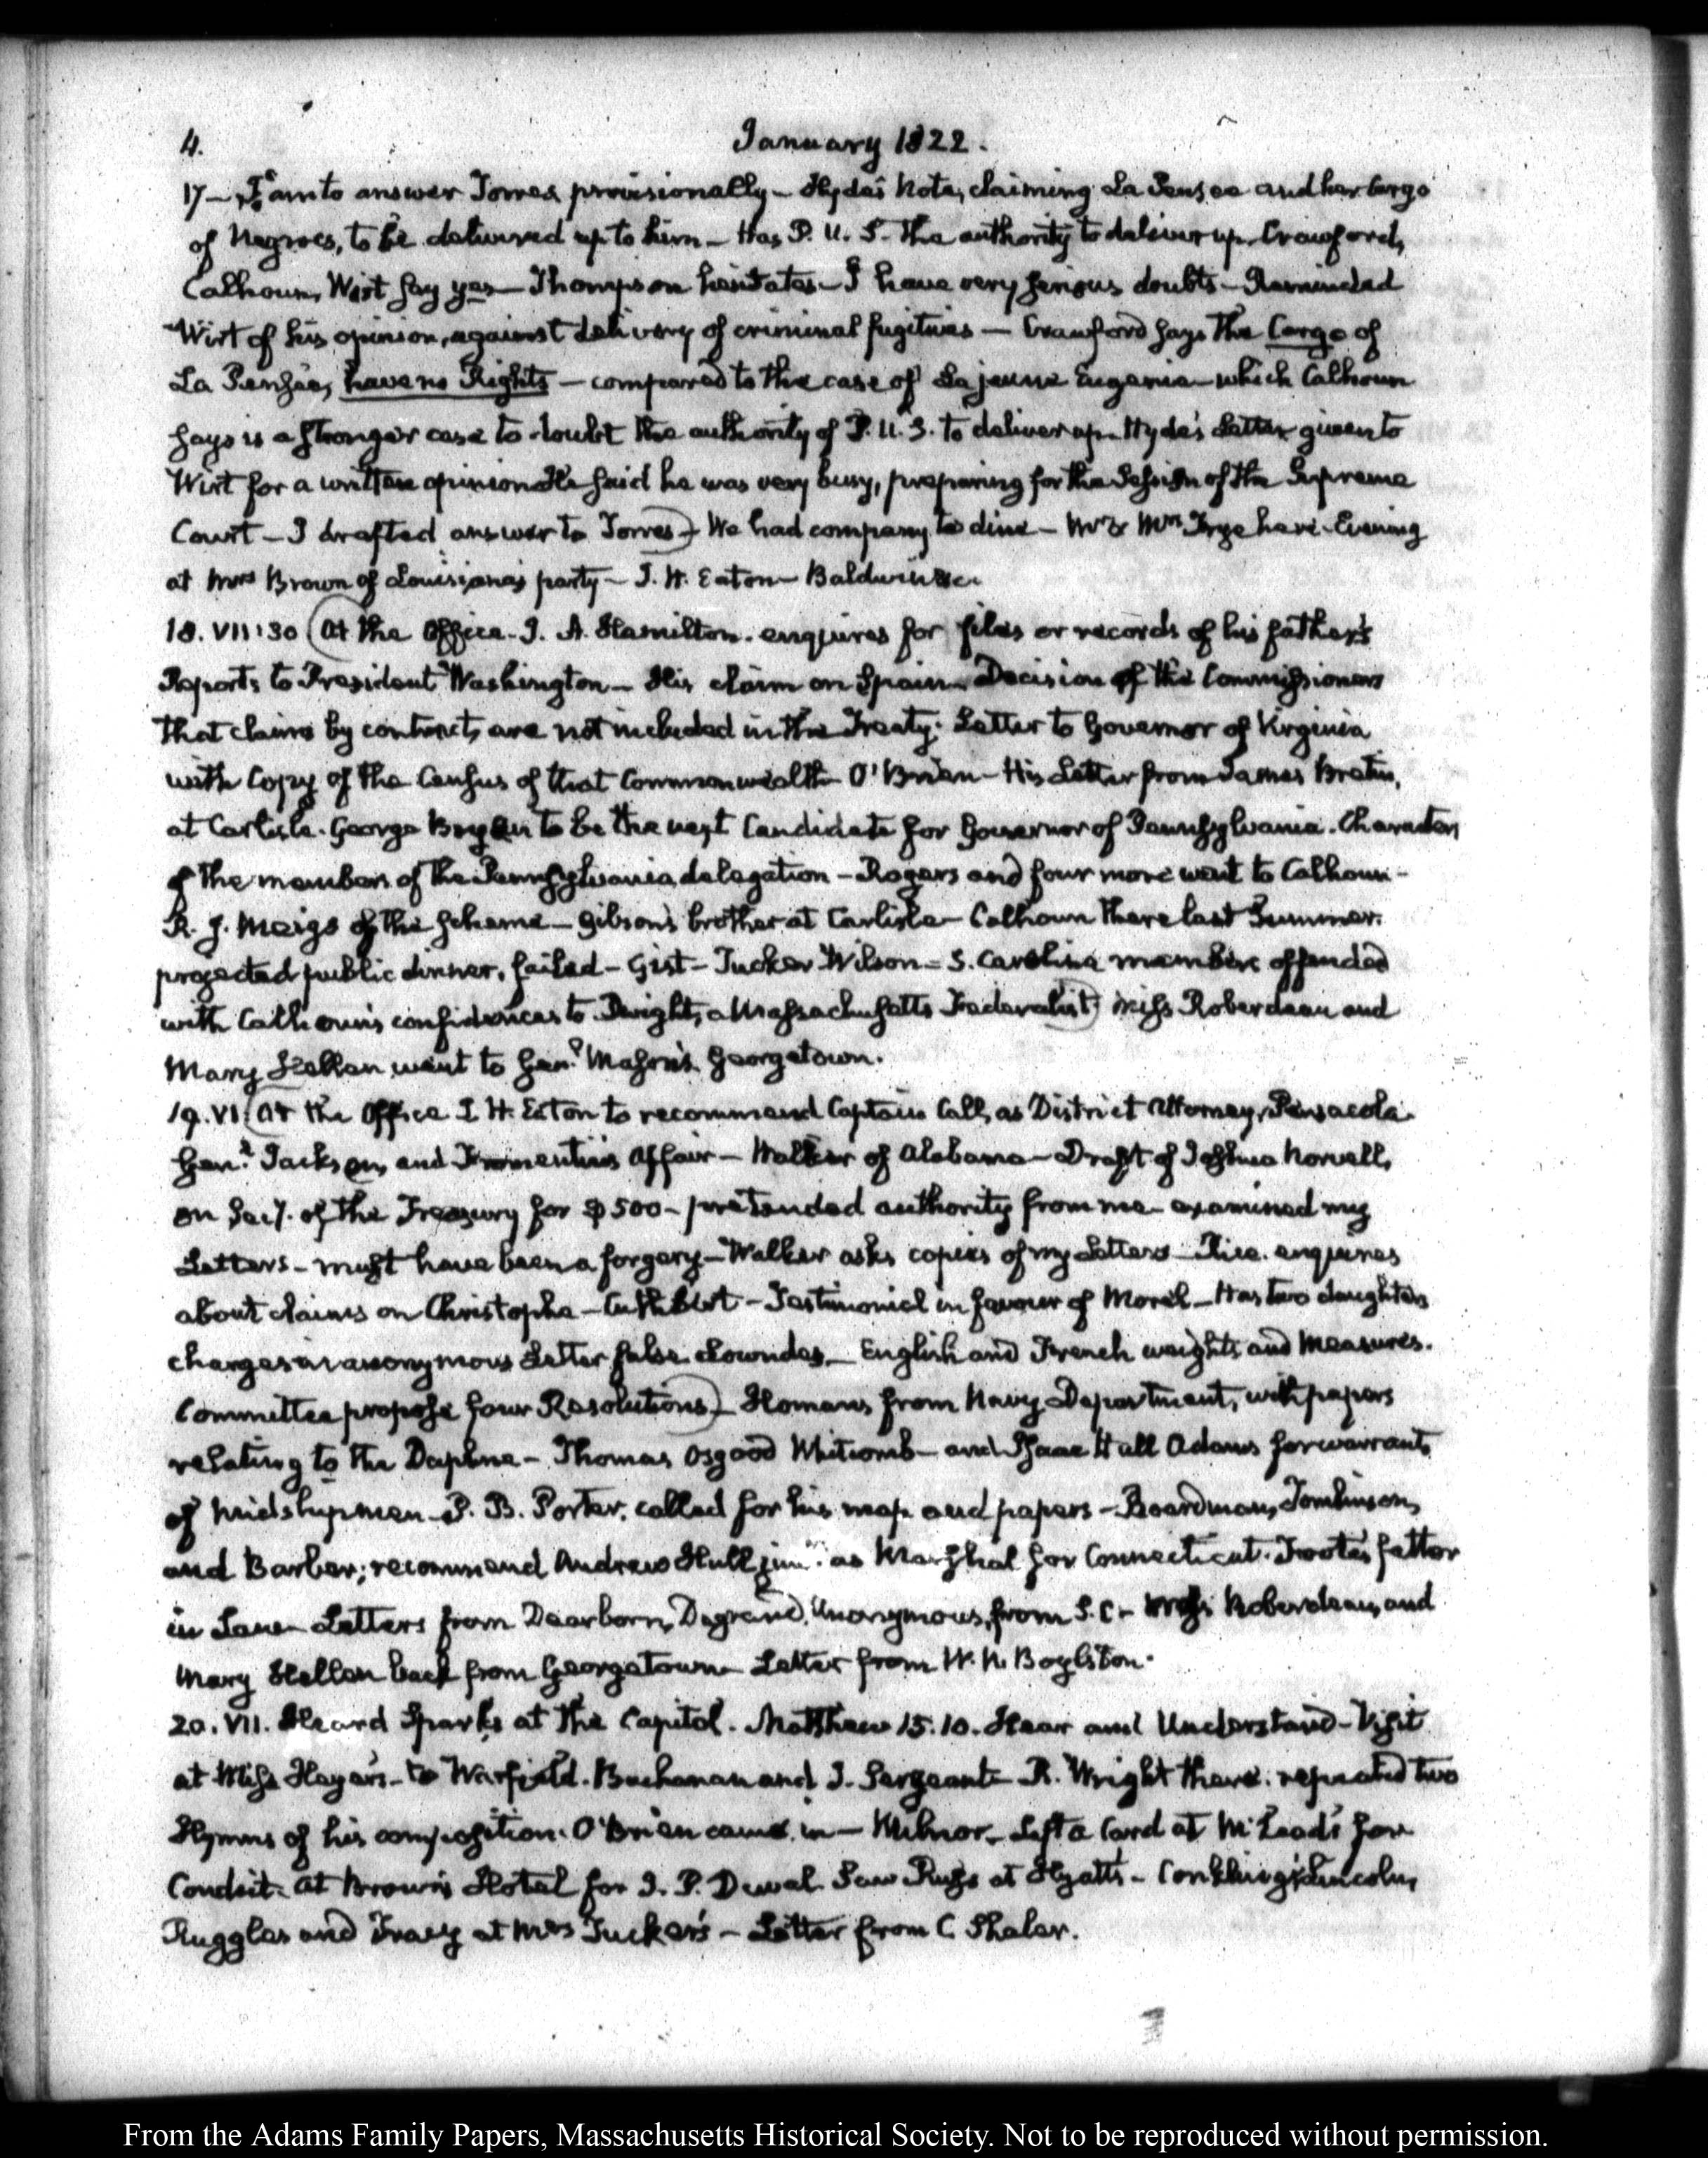 4.
January 1822.
17 — I am to answer Torres provisionally — Hyde's Note, claiming La Pensee and her Cargo
of Negroes, to be delivered up to him — Has P. U. S. the authority to deliver up. Crawford,
Calhoun, Wirt say yes — Thompson hesitates — I have very serious doubts — Reminded
Wirt of his opinion, against delivery of criminal fugitives — Crawford says the Cargo of
La Pensée, have no Rights — compared to the case of La jeune Eugenie — which Calhoun
says is a stronger case to doubt the authority of P. U. S. to deliver up — Hyde's Letter given to
Wirt for a written opinion. He said he was very busy, preparing for the Session of the Supreme
Court — I drafted answer to Torres) — We had company to dine — Mr & Mrs Frye here. Evening
at Mrs Brown of Louisiana's party — J. H. Eaton — Baldwin &c.
18. VII:30 (At the Office. J. A. Hamilton. enquires for files or records of his father's
Reports to President Washington — His claim on Spain — Decision of the Commissioners
that claims by contract, are not included in the Treaty. Letter to Governor of Virginia
with Copy of the Census of that Commonwealth — O'Brien — His Letter from James
at Carlisle. George Bryan to be the next Candidate for Governor of Pennsylvania. Character
of the members of the Pennsylvania delegation — Rogers and four more went to Calhoun —
R. J. Meigs of the scheme — Gibson's brother at Carlisle — Calhoun there last Summer.
projected public dinner, failed — Gist — Tucker Wilson — S. Carolina members offended
with Calhoun's confidences to Dwight, a Massachusetts Federalist) Miss Roberdeau and
Mary Hellen went to Genl. Mason's. Georgetown.
19. VI (At the Office J. H. Eaton to recommend Captain Call, as District Attorney, Pensacola.
Genl. Jackson, and Fromentin's Affair — Walker of Alabama — Draft of Joshua Norvell,
on Secy. of the Treasury for $500 — pretended authority from me — examined my
Letters — must have been a forgery — Walker asks copies of my Letters — enquires
about claims on Christophe — Cuthbert — Testimonial in favour of Morel — Has two daughters
charges in anonymous Letter false. Lowndes — English and French weights and Measures.
Committee propose four Resolutions) — Homans from Navy Department, with papers
relating to the Daphne — Thomas Osgood Whitcomb — and Isaac Hall Adams for warrants
of Midshipmen. P. B. Porter. called for his map and papers — Boardman, Tomlinson,
and Barber; recommend Andrew Hull junr. as Marshal for Connecticut. Foote's Letter
in Letters from Dearborn, Degrand. Anonymous, from S. C — Miss Roberdeau, and
Mary Hellen back from Georgetown — Letter from W. N. Boylston.
20. VII. Heard Sparks at the Capitol. Matthew 15. 10. Hear and Understand — Visit
at Miss Heyer's — to Warfield. Buchanan and J. Sergeant — R. Wright there. repeated two
Hymns of his composition. O'Brien came in — Milnor — Left a Card at McLeod's for
Condict. At Brown's Hotel for J. P. Duval Saw Russ at Hyatt's — Conkling, Lincoln,
Ruggles and Tracy at Mrs Tucker's — Letter from C Shaler.
From the Adams Family Papers, Massachusetts Historical Society. Not to be reproduced without permission.